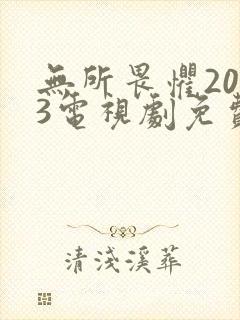 無所畏懼20
3電視劇免費
清淺溪葬